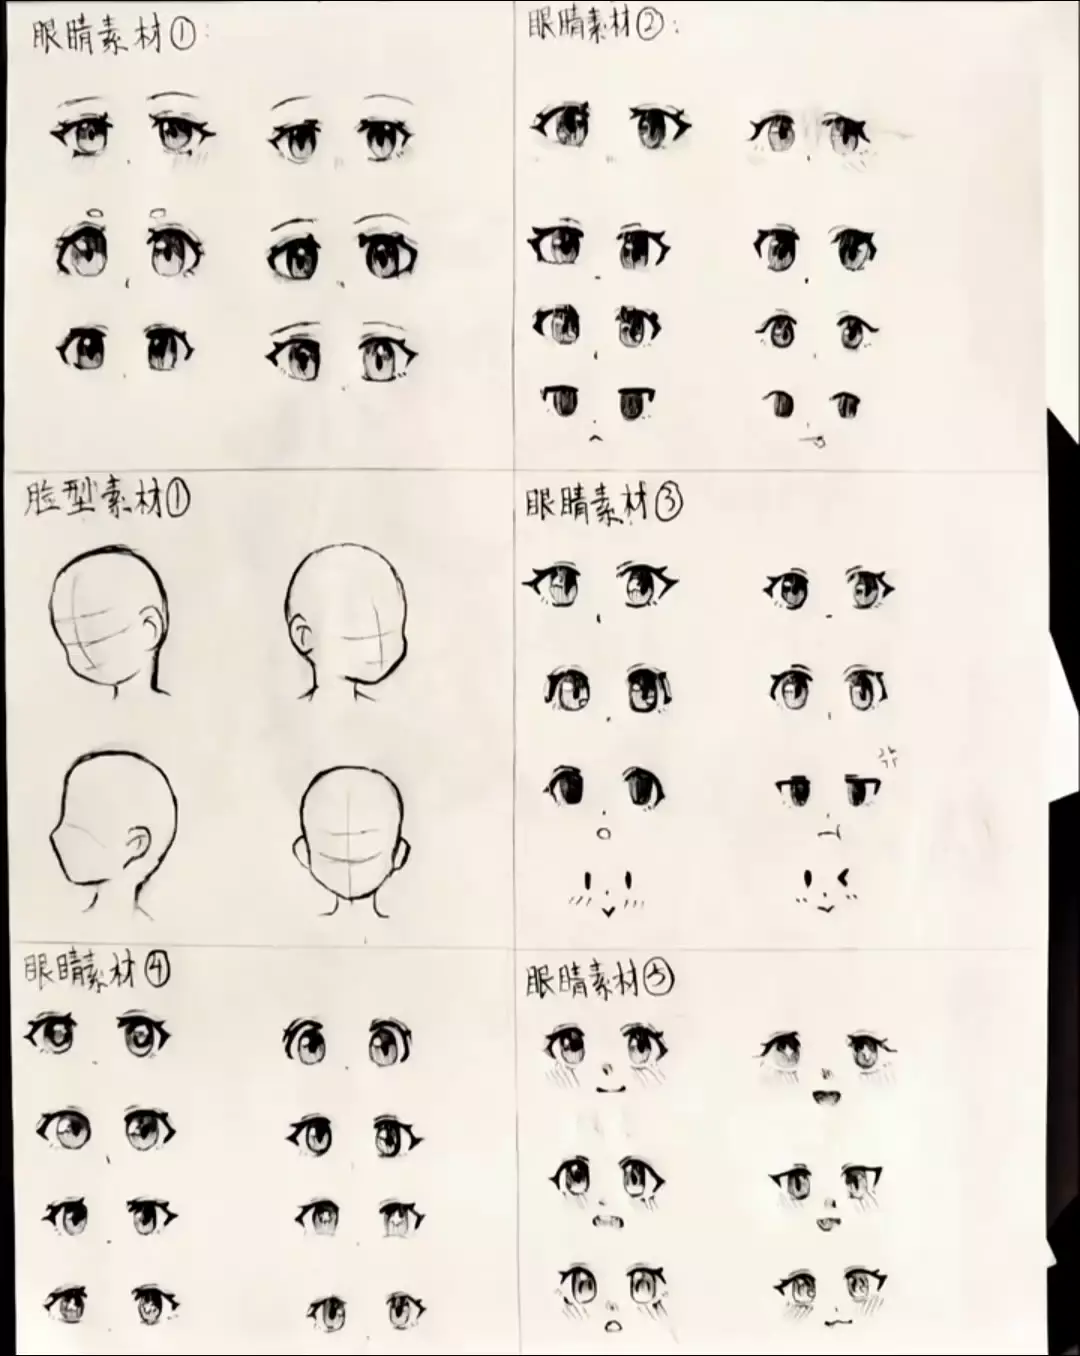 眼睛素材①:
眼睛素材②:
脸型素材①
眼睛素材③
眼睛素材④
眼睛素材⑤